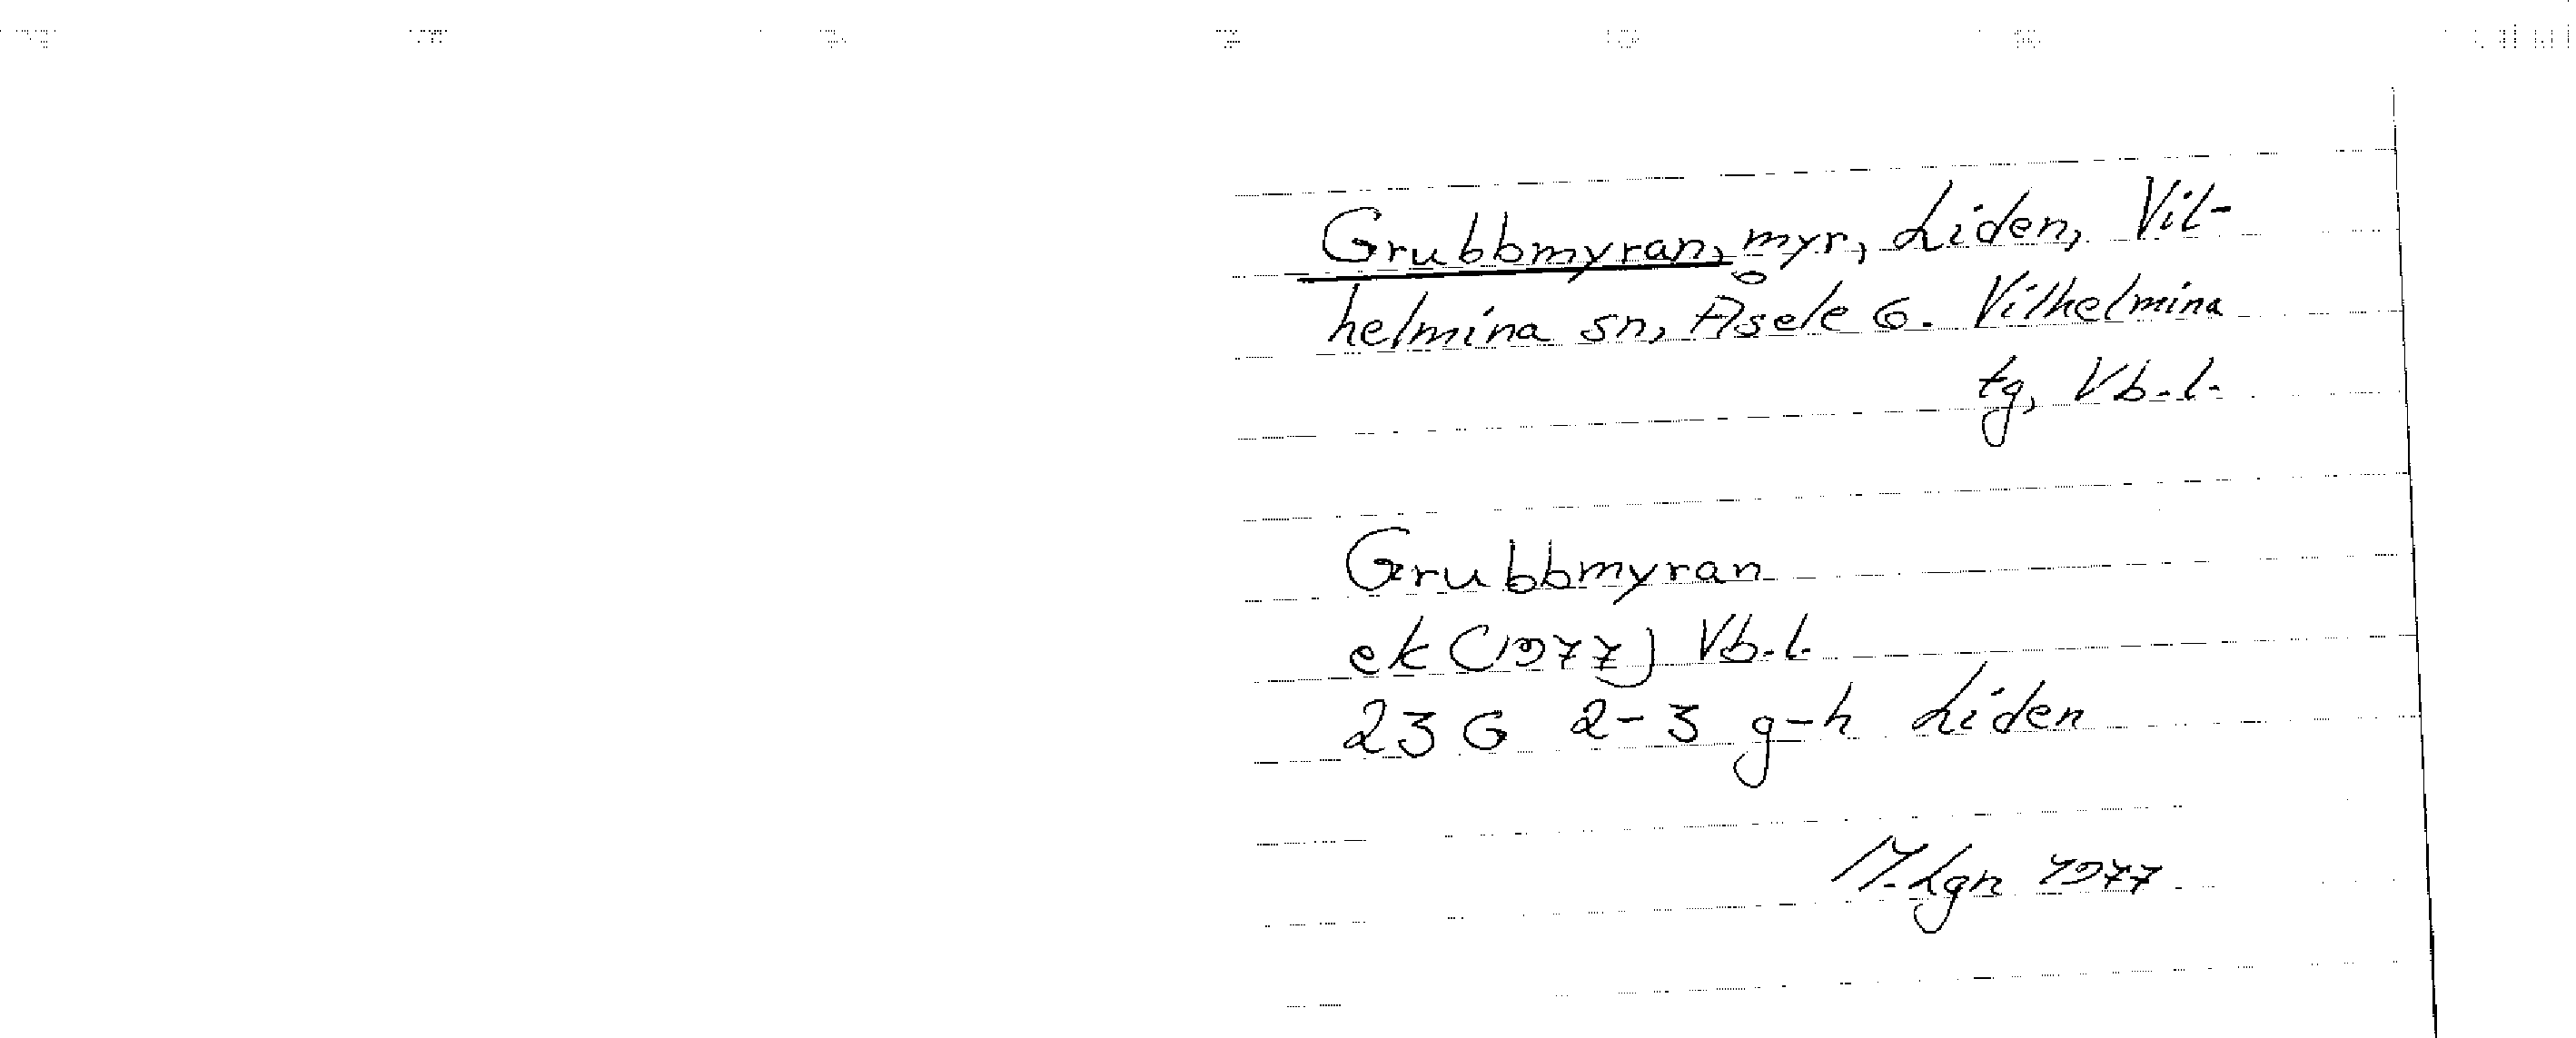 Grubbmyran, myr, Liden, Vil-
helmina sn, Åsele G. Vilhelmina
tg, Vb.l.
Grubbmyran
ek (1977) Vb.l.
23 G 2-3 g-h Liden
M.Lgn 1977